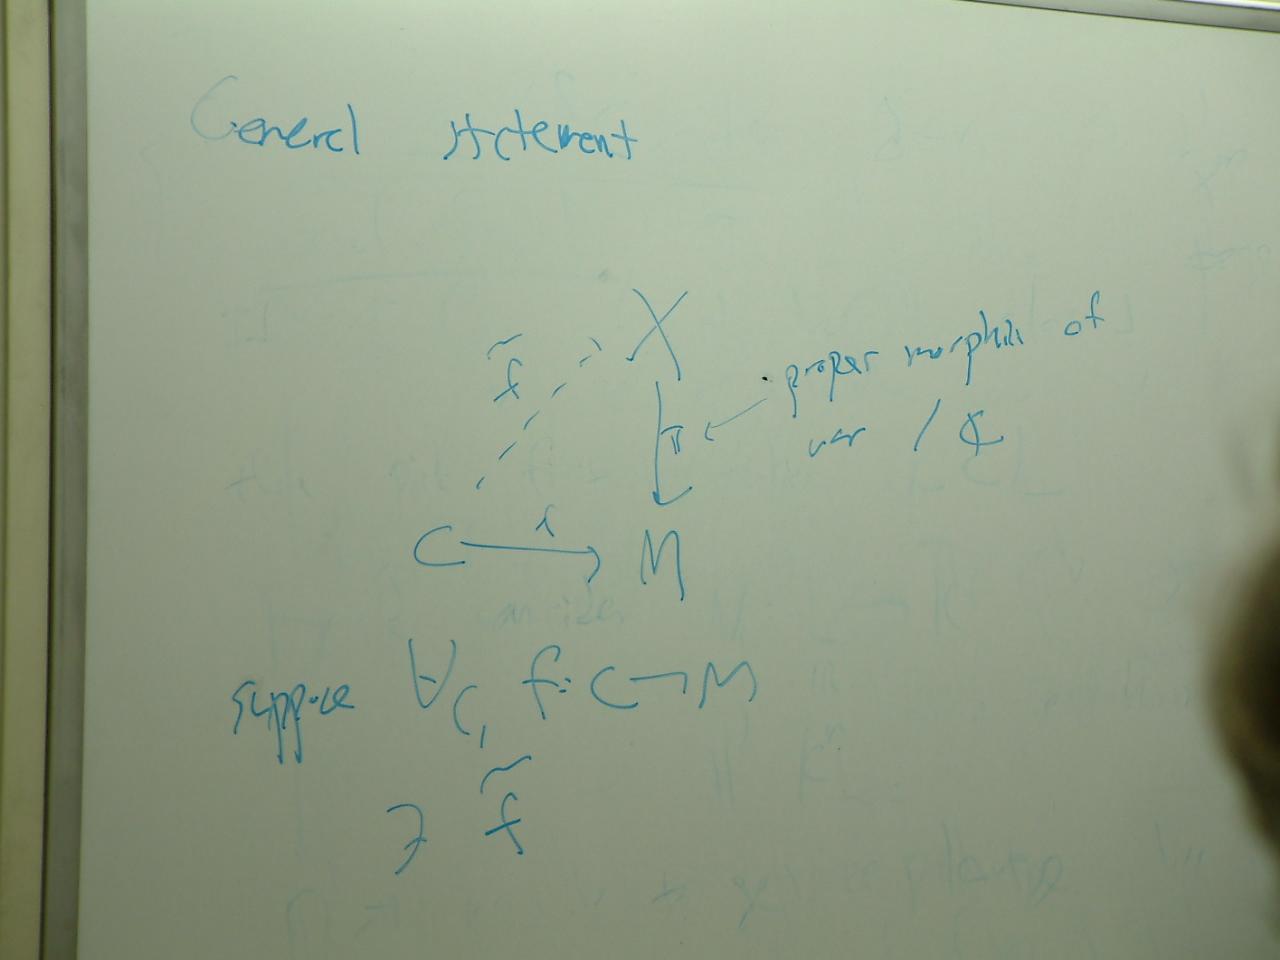 General statement
X
f̃
proper morphism of
π
var / ℂ
f
C → M
suppose ∀ C, f: C → M
∃ f̃